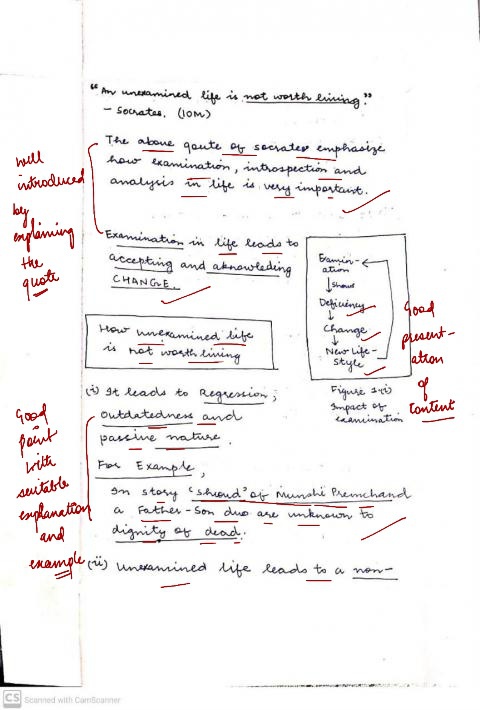 “An unexamined life is not worth living.”
– Socrates. (10M)
The above qoute of socrates emphasize
how examination, introspection and
analysis in life is very important.
well
introduced
by
explaining
the
quote
Examination in life leads to
accepting and aknowleding
CHANGE.
Examin-
ation
↓ shows
Deficiency
↓
Change
↓
New Life-
Style
Figure 1.(i)
Impact of
examination
Good
present-
ation
of
content
How unexamined life
is not worth living
(i) It leads to Regression,
outdatedness and
passive nature.
For Example,
In story 'Shroud' of Munshi Premchand
a Father-Son duo are unknown to
dignity of dead.
Good
point
with
suitable
explanation
and
example
(ii) Unexamined life leads to a non-
CS Scanned with CamScanner